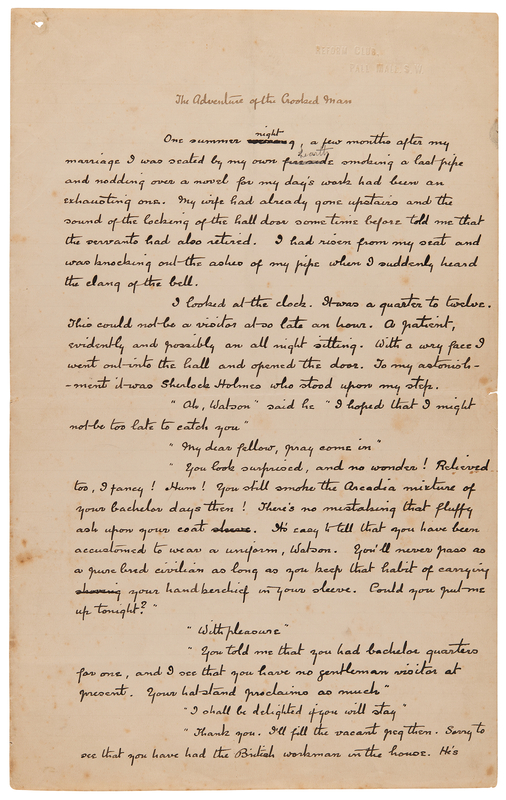 REFORM CLUB.
PALL MALL. S.W.
The Adventure of the Crooked Man
One summer night, a few months after my
marriage I was seated by my own hearth smoking a last pipe
and nodding over a novel for my day's work had been an
exhausting one. My wife had already gone upstairs and the
sound of the locking of the hall door some time before told me that
the servants had also retired. I had risen from my seat and
was knocking out the ashes of my pipe when I suddenly heard
the clang of the bell.
I looked at the clock. It was a quarter to twelve.
This could not be a visitor at so late an hour. A patient,
evidently and possibly an all night sitting. With a wry face I
went out into the hall and opened the door. To my astonish-
-ment it was Sherlock Holmes who stood upon my step.
"Ah, Watson" said he "I hoped that I might
not be too late to catch you"
"My dear fellow, pray come in"
"You look surprised, and no wonder! Relieved
too, I fancy! Hum! You still smoke the Arcadia mixture of
your bachelor days then! There's no mistaking that fluffy
ash upon your coat. Its easy to tell that you have been
accustomed to wear a uniform, Watson. You'll never pass as
a pure bred civilian as long as you keep that habit of carrying
your handkerchief in your sleeve. Could you put me
up tonight?"
"With pleasure"
"You told me that you had bachelor quarters
for one, and I see that you have no gentleman visitor at
present. Your hat-stand proclaims as much"
"I shall be delighted if you will stay"
"Thank you. I'll fill the vacant peg then. Sorry to
see that you have had the British workman in the house. He's